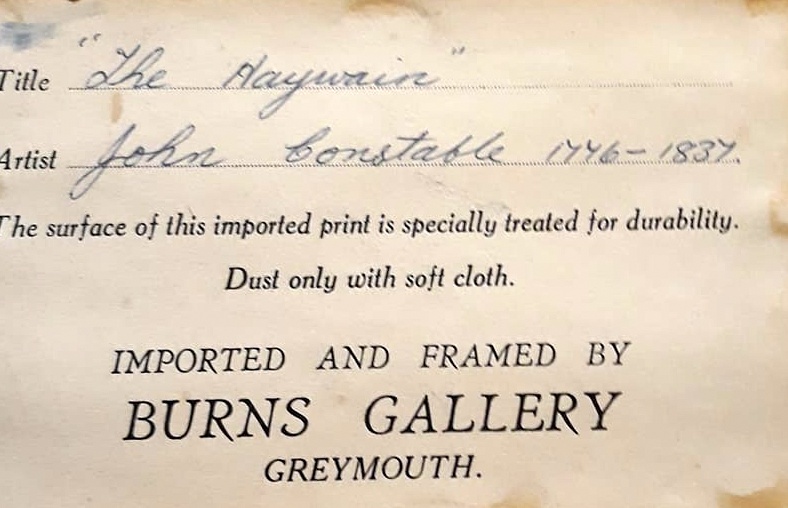 Title "The Haywain"
Artist John Constable 1776-1837.
The surface of this imported print is specially treated for durability.
Dust only with soft cloth.
IMPORTED AND FRAMED BY
BURNS GALLERY
GREYMOUTH.